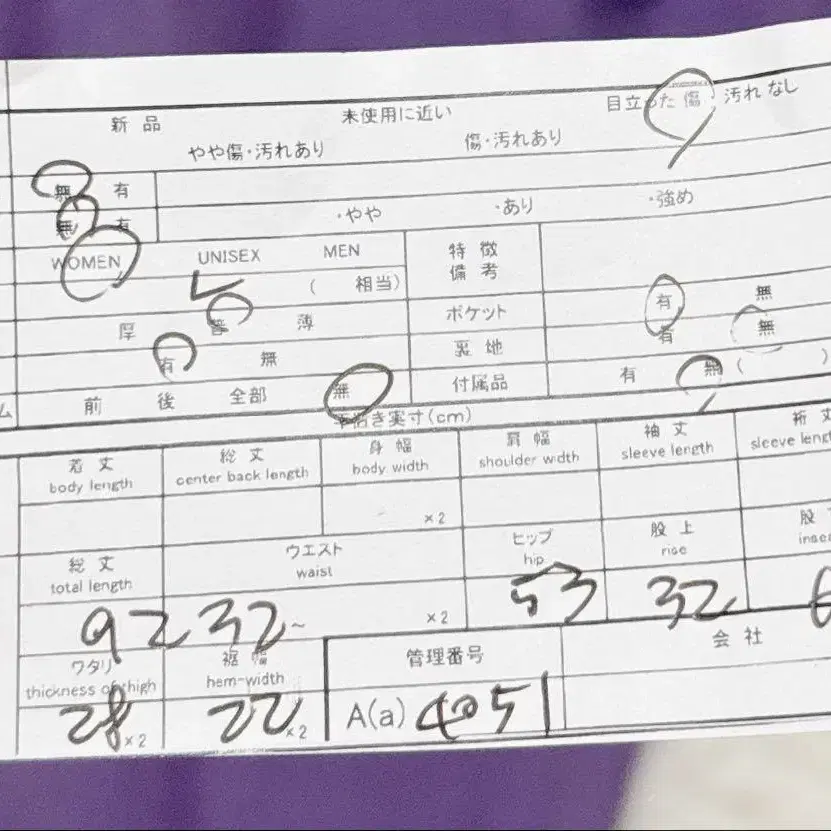 新品 未使用に近い 目立った傷・汚れなし
やや傷・汚れあり 傷・汚れあり
無 有
無 有 ・やや ・あり ・強め
WOMEN UNISEX MEN 特徴
備考
( 相当)
厚 普 薄 ポケット 有 無
有 無 裏地 有 無
ム 前 後 全部 無 付属品 有 無 ( )
平置き実寸(cm)
着丈 総丈 身幅 肩幅 袖丈 裄丈
body length center back length body width shoulder width sleeve length sleeve
×2
総丈 ウエスト ヒップ 股上 股
total length waist hip rise
92 32~ ×2 53 32 6
ワタリ 裾幅 管理番号 会社
thickness of thigh hem-width
28 ×2 22 ×2 A(a) 4051